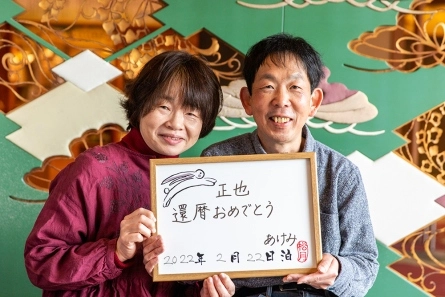 正也
還暦おめでとう
あけみ
2022年 2月 22日 泊